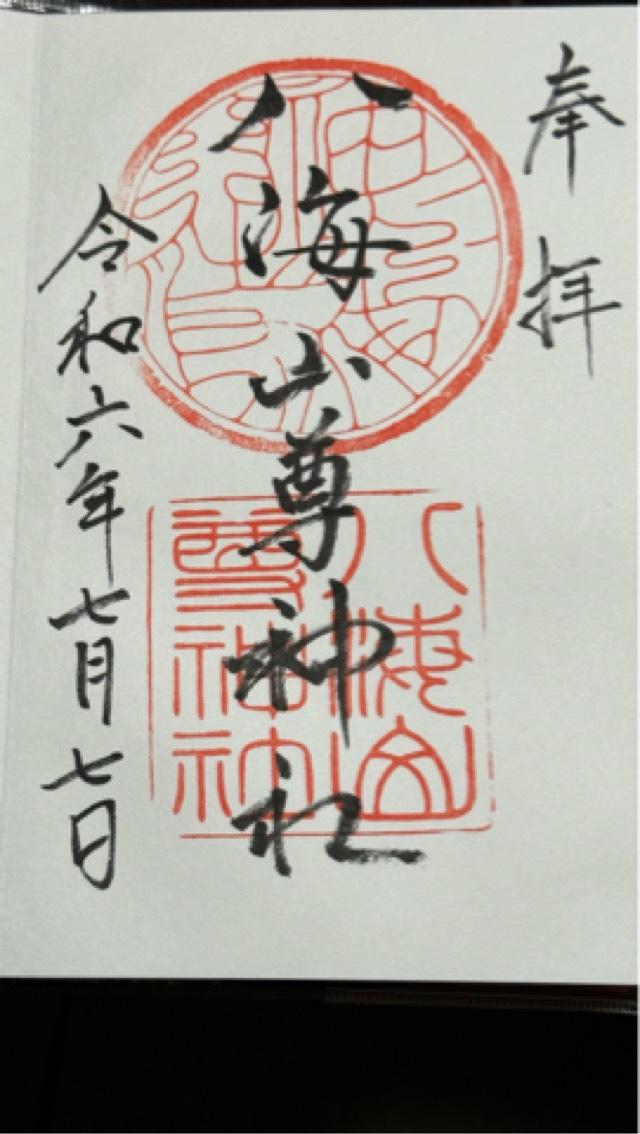 奉拝
八海山尊神社
令和六年七月七日
八海山
尊神社